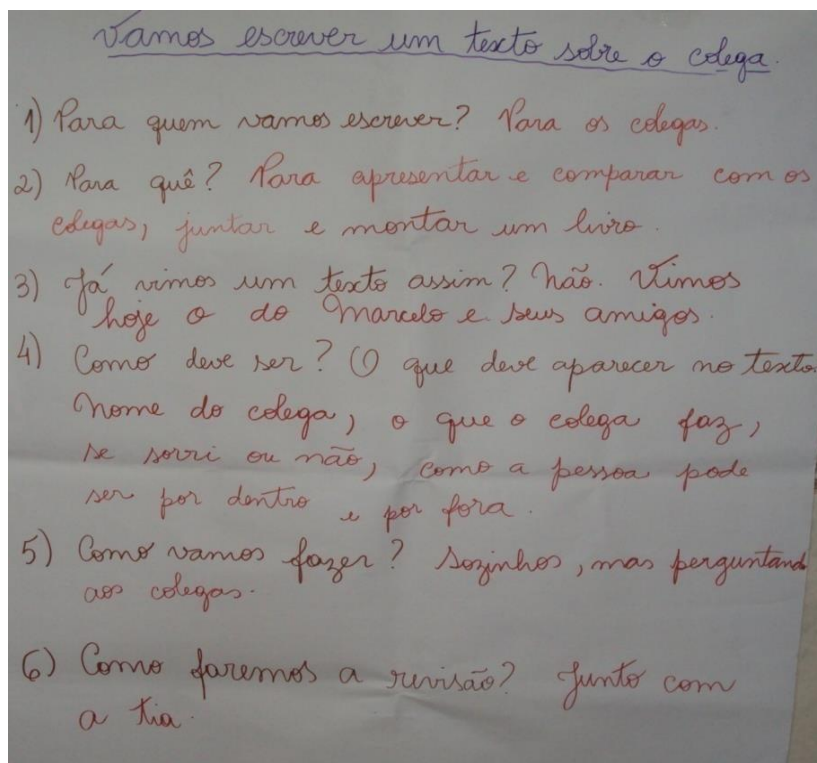 Vamos escrever um texto sobre o colega.
1) Para quem vamos escrever? Para os colegas.
2) Para quê? Para apresentar e comparar com os
colegas, juntar e montar um livro.
3) Já vimos um texto assim? Não. Vimos
hoje o do Marcelo e seus amigos.
4) Como deve ser? O que deve aparecer no texto.
Nome do colega, o que o colega faz,
se sorri ou não, como a pessoa pode
ser por dentro e por fora.
5) Como vamos fazer? Sozinhos, mas perguntando
aos colegas.
6) Como faremos a revisão? Junto com
a tia.